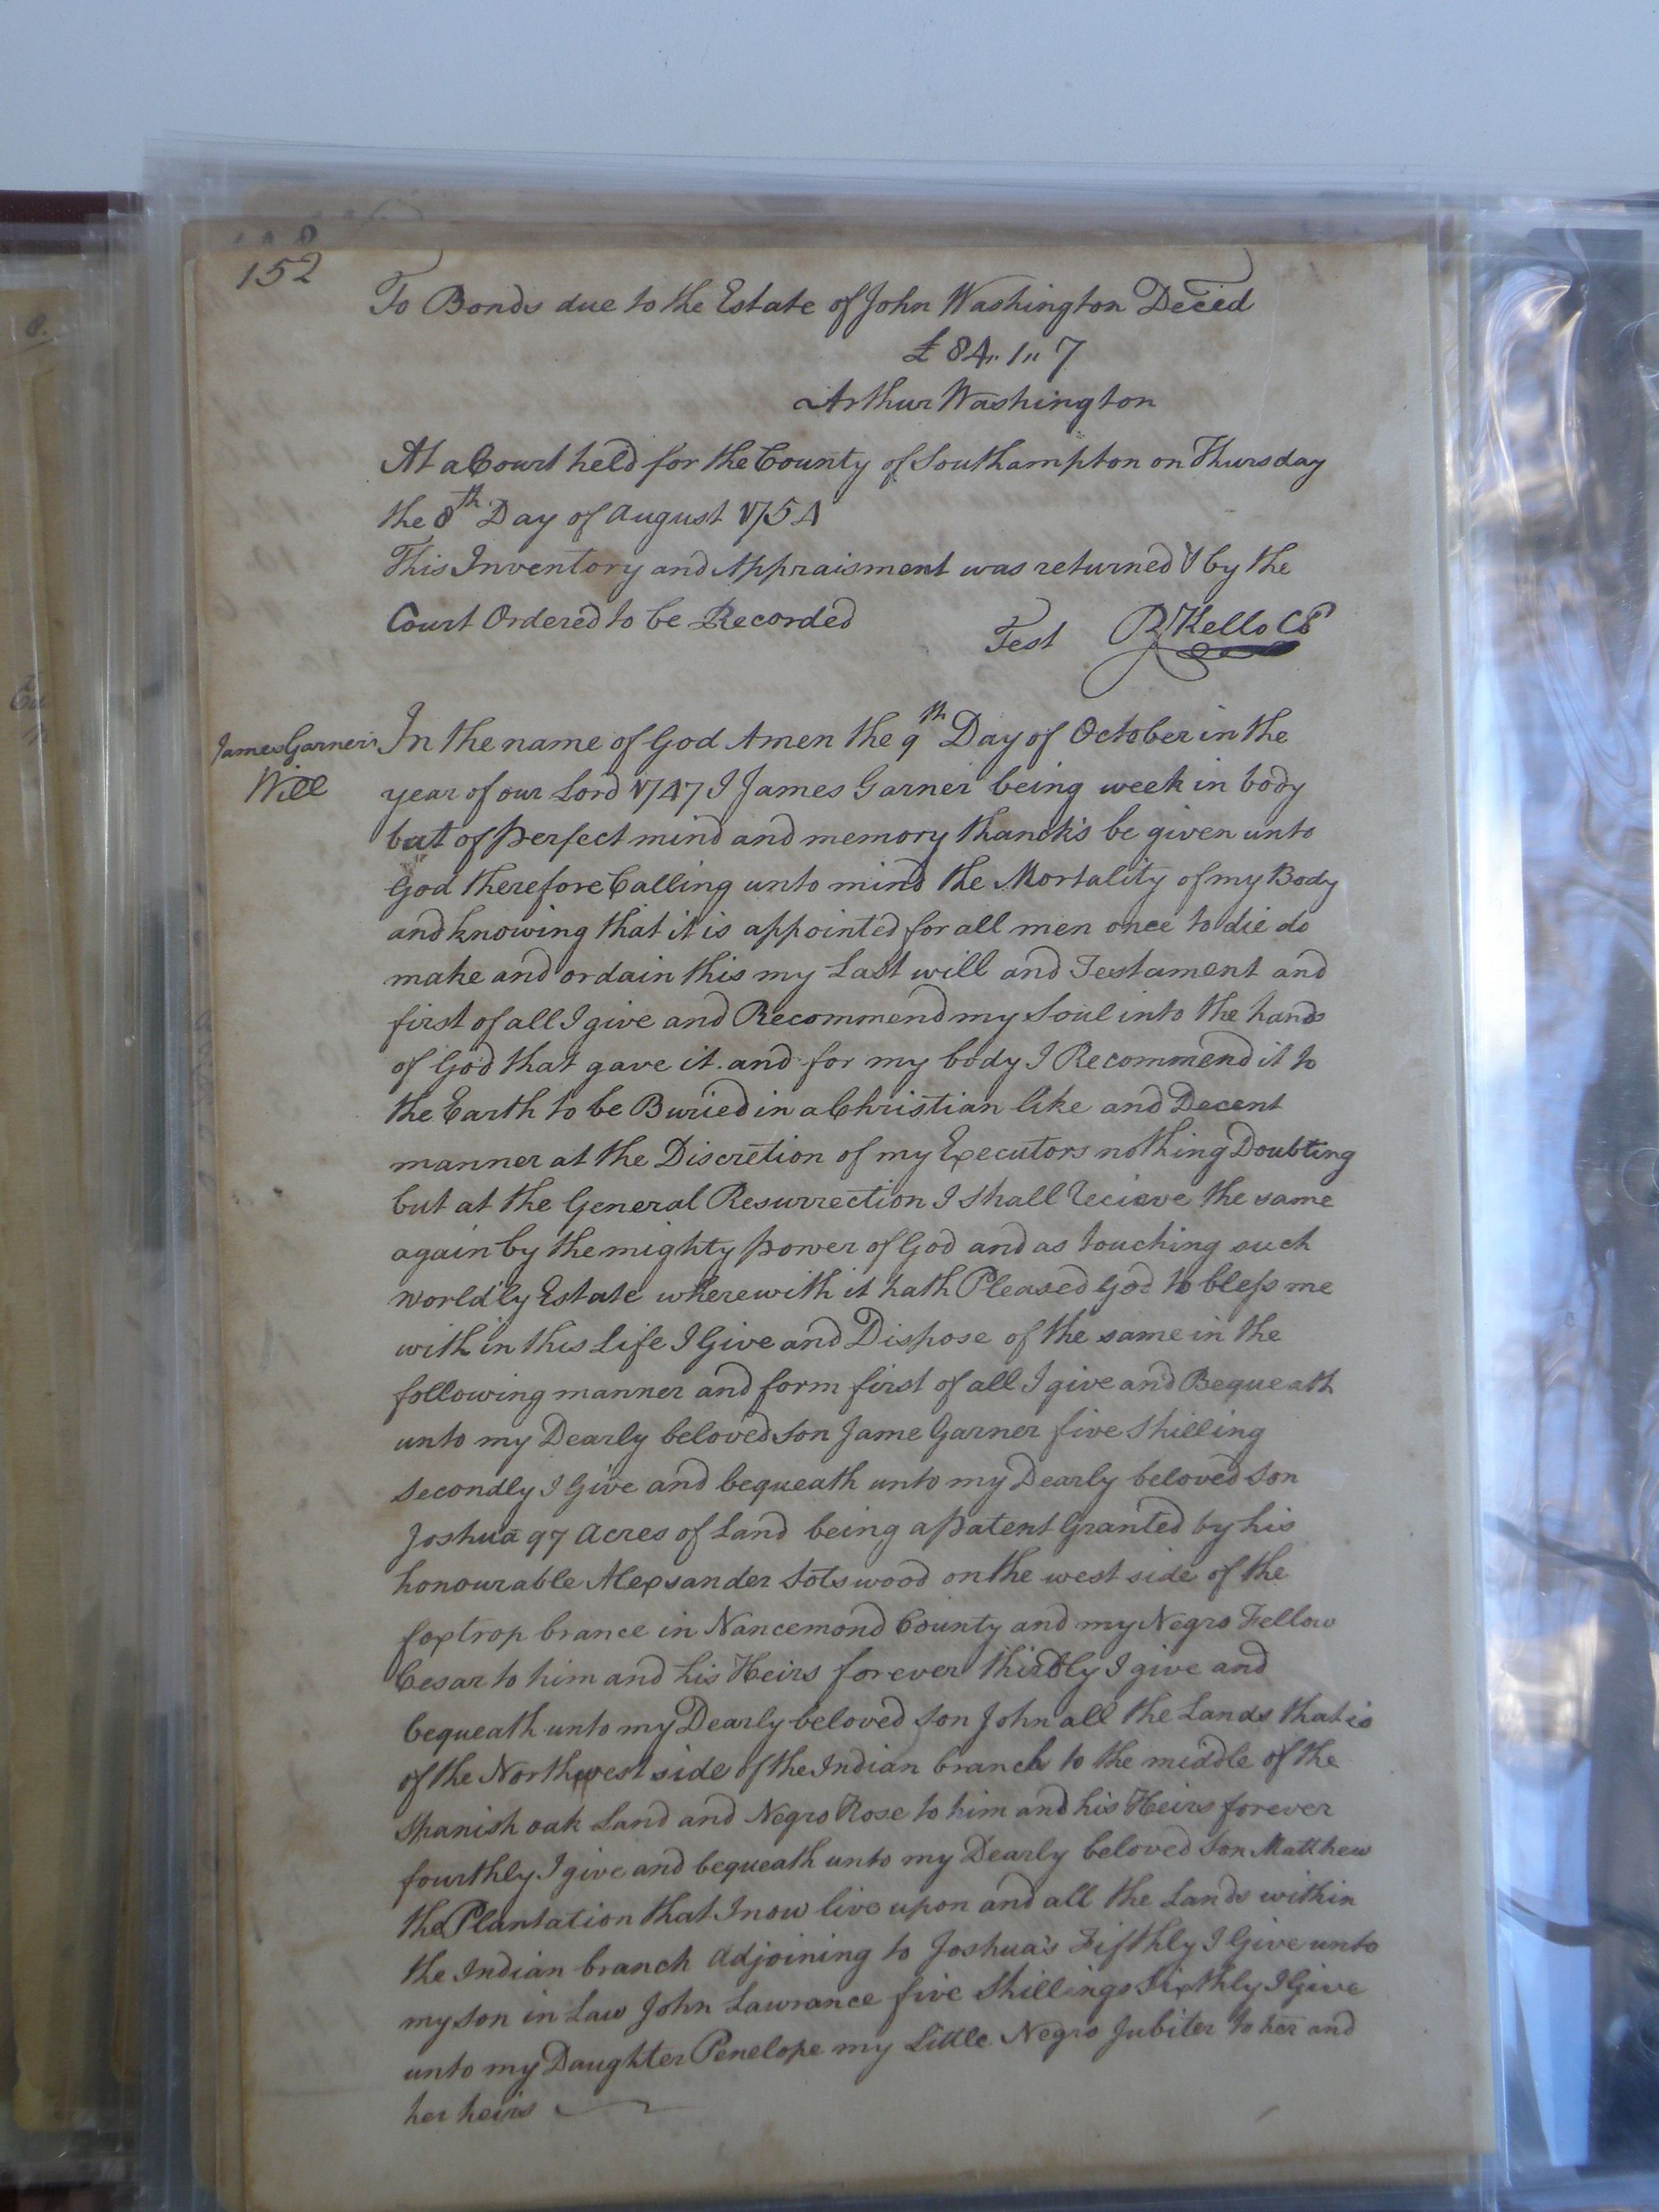 152
To Bonds due to the Estate of John Washington Decēd
£ 84,, 1,, 7
Arthur Washington
At a Court held for the County of Southampton on Thursday
the 8th Day of August 1754
This Inventory and Appraisment was returned & by the
Court Ordered to be Recorded
Test R Kello CC
James Garner's
Will
In the name of God Amen the 9th Day of October in the
year of our Lord 1747 I James Garner being week in body
but of perfect mind and memory thanck's be given unto
God therefore Calling unto mind the Mortality of my Body
and knowing that it is appointed for all men once to die do
make and ordain this my Last will and Testament and
first of all I give and Recommend my Soul into the hands
of God that gave it. and for my body I Recommend it to
the Earth to be Buried in a Christian like and Decent
manner at the Discretion of my Executors nothing Doubting
but at the General Resurrection I shall Recieve the same
again by the mighty power of God and as touching such
worldly Estate wherewith it hath Pleased God to bless me
with in this Life I Give and Dispose of the same in the
following manner and form first of all I give and Bequeath
unto my Dearly beloved Son Jame Garner five Shilling
Secondly I Give and bequeath unto my Dearly beloved Son
Joshua 97 Acres of Land being a patent Granted by his
honourable Alexsander Sotswood on the west side of the
foxtrop brance in Nancemond County and my Negro Fellow
Cesar to him and his Heirs forever thirdly I give and
bequeath unto my Dearly beloved Son John all the Lands that is
of the Northwest side of the Indian branch to the middle of the
Spanish oak Land and Negro Rose to him and his Heirs forever
fourthly I give and bequeath unto my Dearly beloved Son Matthew
the Plantation that I now live upon and all the Lands within
the Indian branch Adjoining to Joshua's Fifthly I Give unto
my Son in Law John Lawrance five Shillings Sixthly I Give
unto my Daughter Penelope my Little Negro Jubiter to her and
her heirs